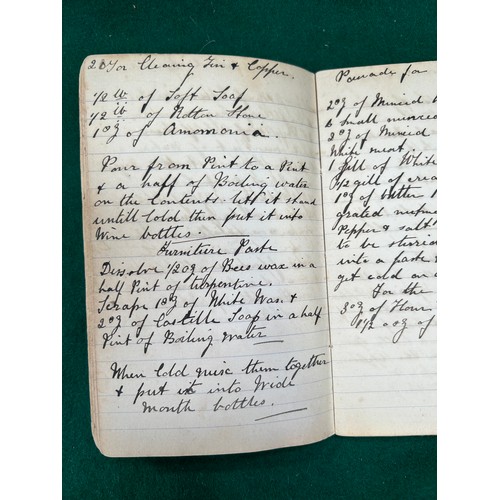 28 For Cleaning Tin & Copper.
1/2 lb of Soft Soap
1/2 lb of Rotten Stone
1 oz of Amomonia.
Pour from Pint to a Pint
& a half of Boiling water
on the Contents. let it stand
untill Cold then put it into
Wine bottles.
Furniture Paste
Dissolve 1/2 oz of Bees wax in a
half Pint of turpentine.
Scrape 1 oz of White Wax. &
2 oz of Castille Soap in a half
Pint of Boiling water
When Cold mix them together
& put it into Wide
Mouth bottles.
for
2 oz of Minced
6 Small minced
2 oz of Minced
White meat.
1 gill of White
1/2 gill of
1 oz of butter
grated
Pepper & Salt
to be stirred
into a paste
get cold
For the
3 oz of Flour
1 1/2 oz of